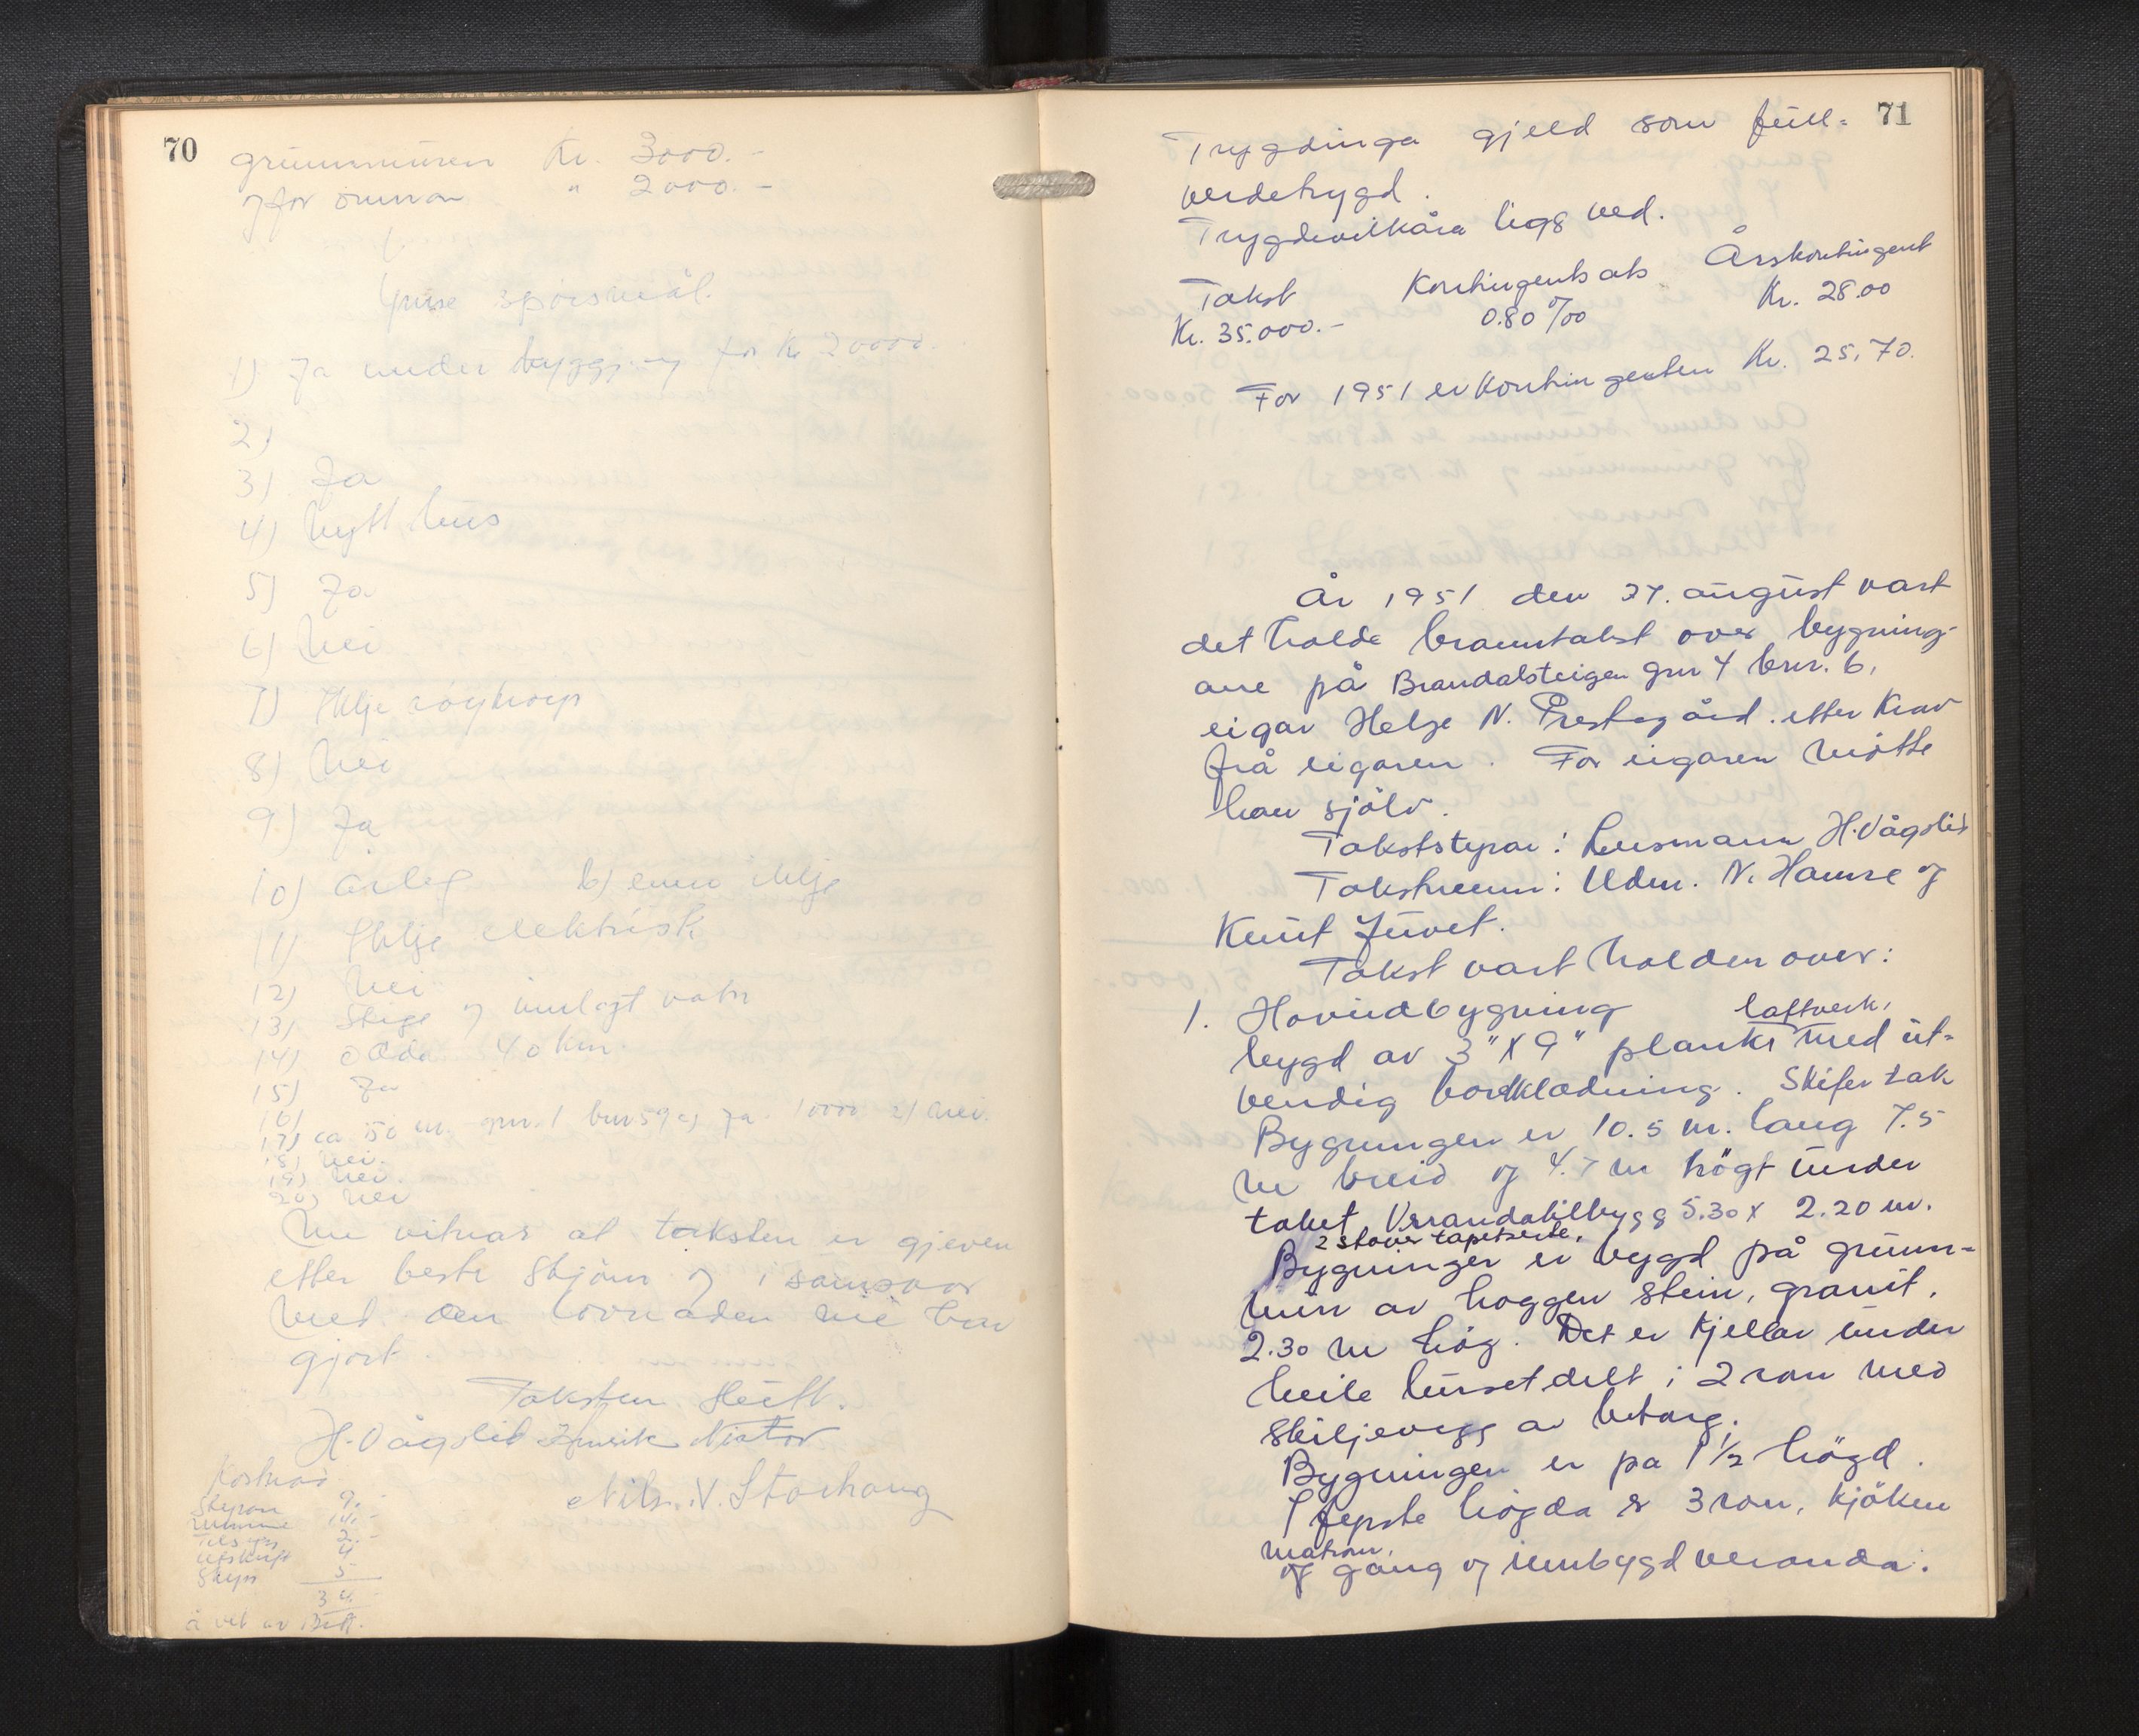 70
grunnmuren Kr. 3000.-
og for omnar " 2000.-
Ymse spörsmål.
1) Ja under byggjing for Kr 20000.
2)
3) Ja
4) Nytt hus
5) Ja
6) Nei
7) Ikkje
8) Nei
9) Ja
10) årleg b) enno ikkje
11) Ikkje elektrisk
12) Nei
13) Stige og innlagt vatn
14) Odda 40 km.
15) Ja
16)
17) ca 50 m. gnr. 1 bnr 59 a) Ja. 1000 2) Nei.
18) Nei.
19) Nei.
20) Nei
Me vitnar at taksten er gjeven
etter beste skjönn og i samsvar
med den lovnaden me har
gjort.
Taksten slutt.
H. Vågslid Nistov
Nils V. Storhaug
Kostnad
Styrar 9.-
Mennene 14.-
2.-
Utskrift 4
Skyss 5
34.-
71
Trygdinga gjeld som full-
verdetrygd.
Trygdevilkåra ligg ved.
Takst Kontingentsats Årskontingent
Kr. 35.000.- 0.80 ‰ Kr. 28.00
For 1951 er kontingenten Kr. 25,70.
År 1951 den 27. august vart
det halde branntakst over bygning-
ane på Brandalsteigen gnr 4 bnr. 6,
eigar Helge N. Prestegård. etter krav
frå eigaren. For eigaren mötte
han sjölv.
Takststyrar: Lensmann H. Vågslid
Takstmenn: Udm. N. Hamre og
Knut Juvet.
Takst vart halden over:
1. Hovudbygning laftverk,
bygd av 3" X 9" plank med ut-
vendig bordklædning. Skifertak
Bygningen er 10.5 m. lang 7.5
m breid og 4.7 m högt under
taket, Verandatilbygg 5.30 X 2.20 m.
2 stover tapetserte,
Bygningen er bygd på grunn-
mur av hoggen stein, granit,
2.30 m hög. Det er kjellar under
heile huset delt i 2 rom med
skiljevegg av betong.
Bygningen er på 1 ½ högd.
I fyrste högda er 3 rom, kjöken
matrom,
og gang og innbygd veranda.